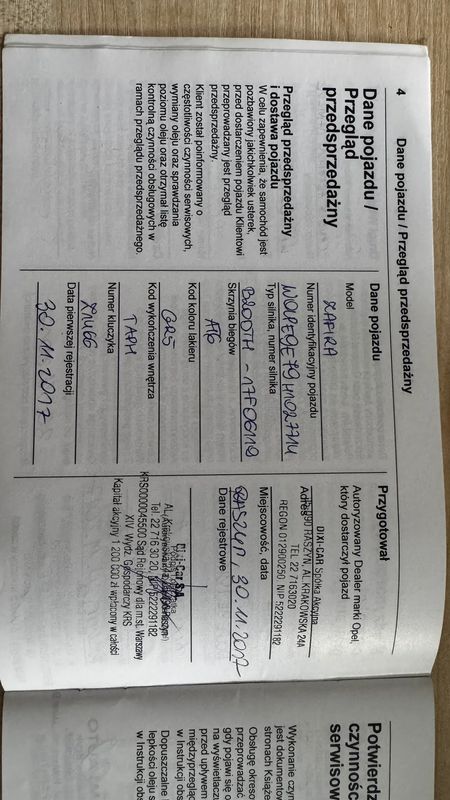 4
Dane pojazdu / Przegląd przedsprzedażny
Dane pojazdu /
Przegląd
przedsprzedażny
Przegląd przedsprzedażny
i dostawa pojazdu
W celu zapewnienia, że samochód jest
pozbawiony jakichkolwiek usterek,
przed dostarczeniem pojazdu Klientowi
przeprowadzany jest przegląd
przedsprzedażny.
Klient został poinformowany o
częstotliwości czynności serwisowych,
wymiany oleju oraz sprawdzania
poziomu oleju oraz otrzymał listę
kontrolną czynności obsługowych w
ramach przeglądu przedsprzedażnego.
Dane pojazdu
Model
ZAFIRA
Numer identyfikacyjny pojazdu
W0VPE9E79H1027714
Typ silnika, numer silnika
B20DTH - 17F06112
Skrzynia biegów
AT6
Kod koloru lakieru
GR5
Kod wykończenia wnętrza
TAPM
Numer kluczyka
Data pierwszej rejestracji
30.11.2017
Przygotował
Autoryzowany Dealer marki Opel,
który dostarczył pojazd
DIXI-CAR Spółka Akcyjna
Adres
RASZYN, AL. KRAKOWSKA 24A
TEL. 22 7163020
REGON 012900250 NIP 5222291182
Miejscowość, data
RASZYN, 30.11.2017
Dane rejestrowe
Dixi-Car S.A.
Al. Krakowska
Tel. 22 716 30 20, NIP 5222291182
KRS0000045500 Sąd Rejonowy dla m.st. Warszawy
XIV Wydz. Gospodarczy KRS
Kapitał akcyjny 1 200 000 zł wpłacony w całości
Potwierdz
czynnośc
serwisow
Wykonanie czyn
jest dokumentow
stronach Książk
Obsługę okreso
przeprowadzać
gdy pojawi się o
na wyświetlaczu
przed upływem
międzyprzegląd
w Instrukcji obs
Dopuszczalne l
lepkości oleju s
w Instrukcji obs